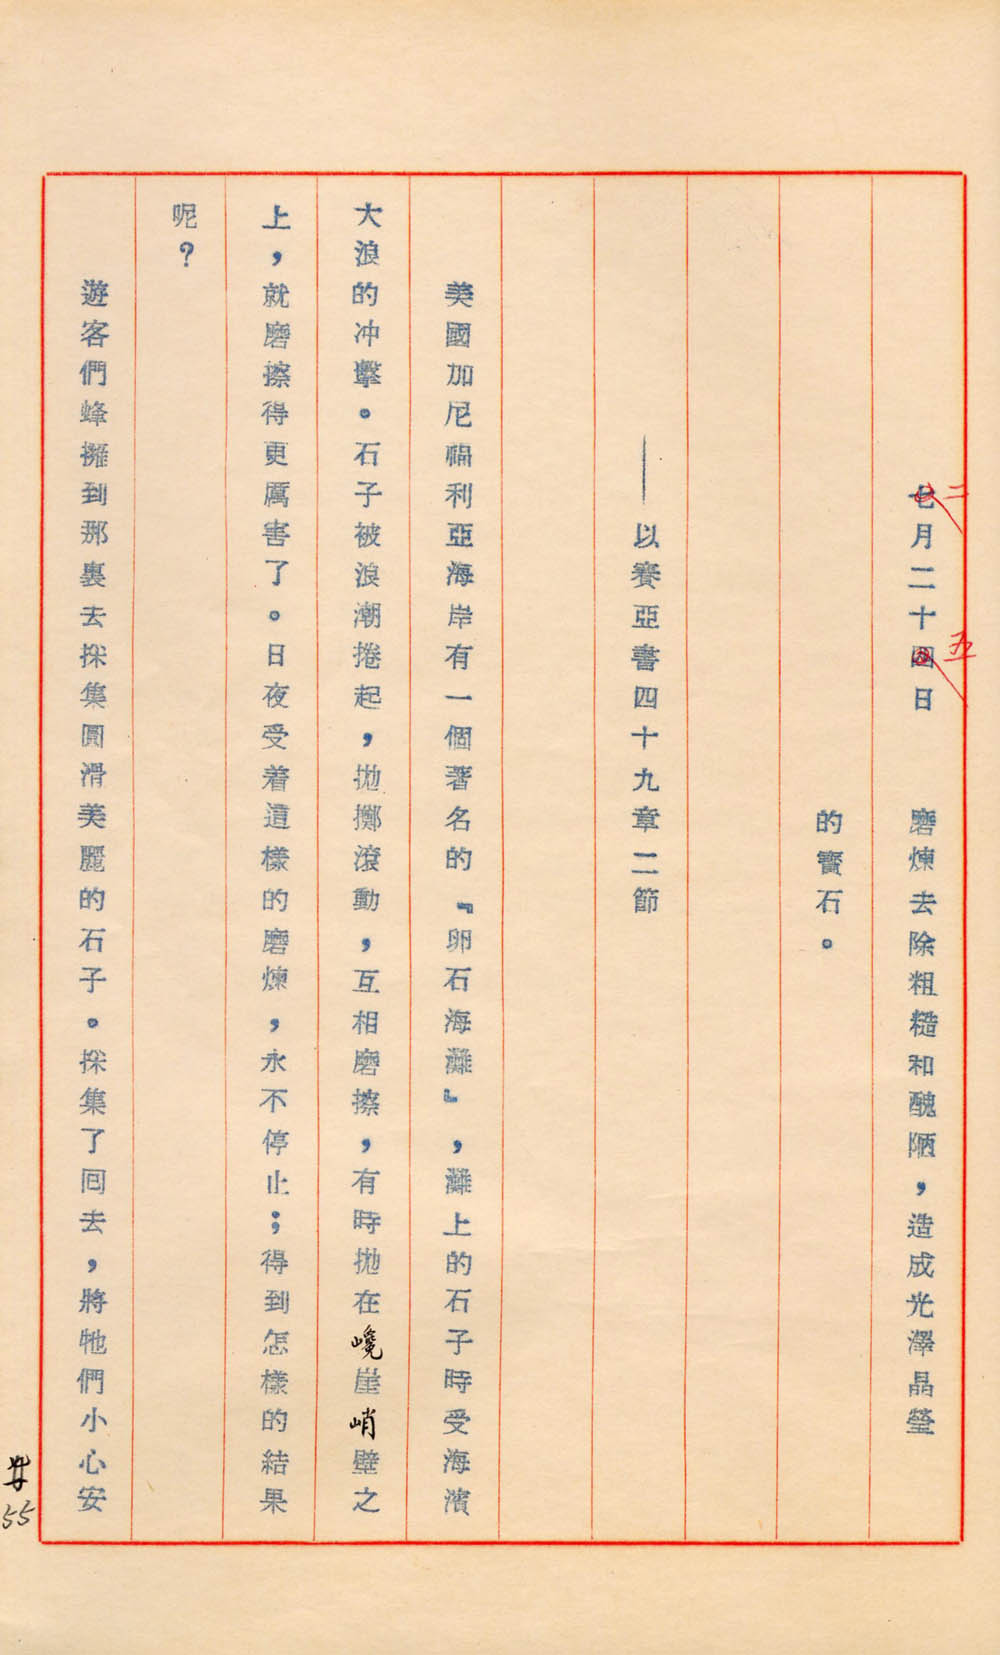 七月二十四日　磨煉去除粗糙和醜陋，造成光澤晶瑩
二
五
的寶石。
——以賽亞書四十九章二節
美國加尼福利亞海岸有一個著名的『卵石海灘』，灘上的石子時受海濱
大浪的冲擊。石子被浪潮捲起，拋擲滾動，互相磨擦，有時拋在巉崖峭壁之
上，就磨擦得更厲害了。日夜受着這樣的磨煉，永不停止；得到怎樣的結果
呢？
遊客們蜂擁到那裏去採集圓滑美麗的石子。採集了囘去，將牠們小心安
55